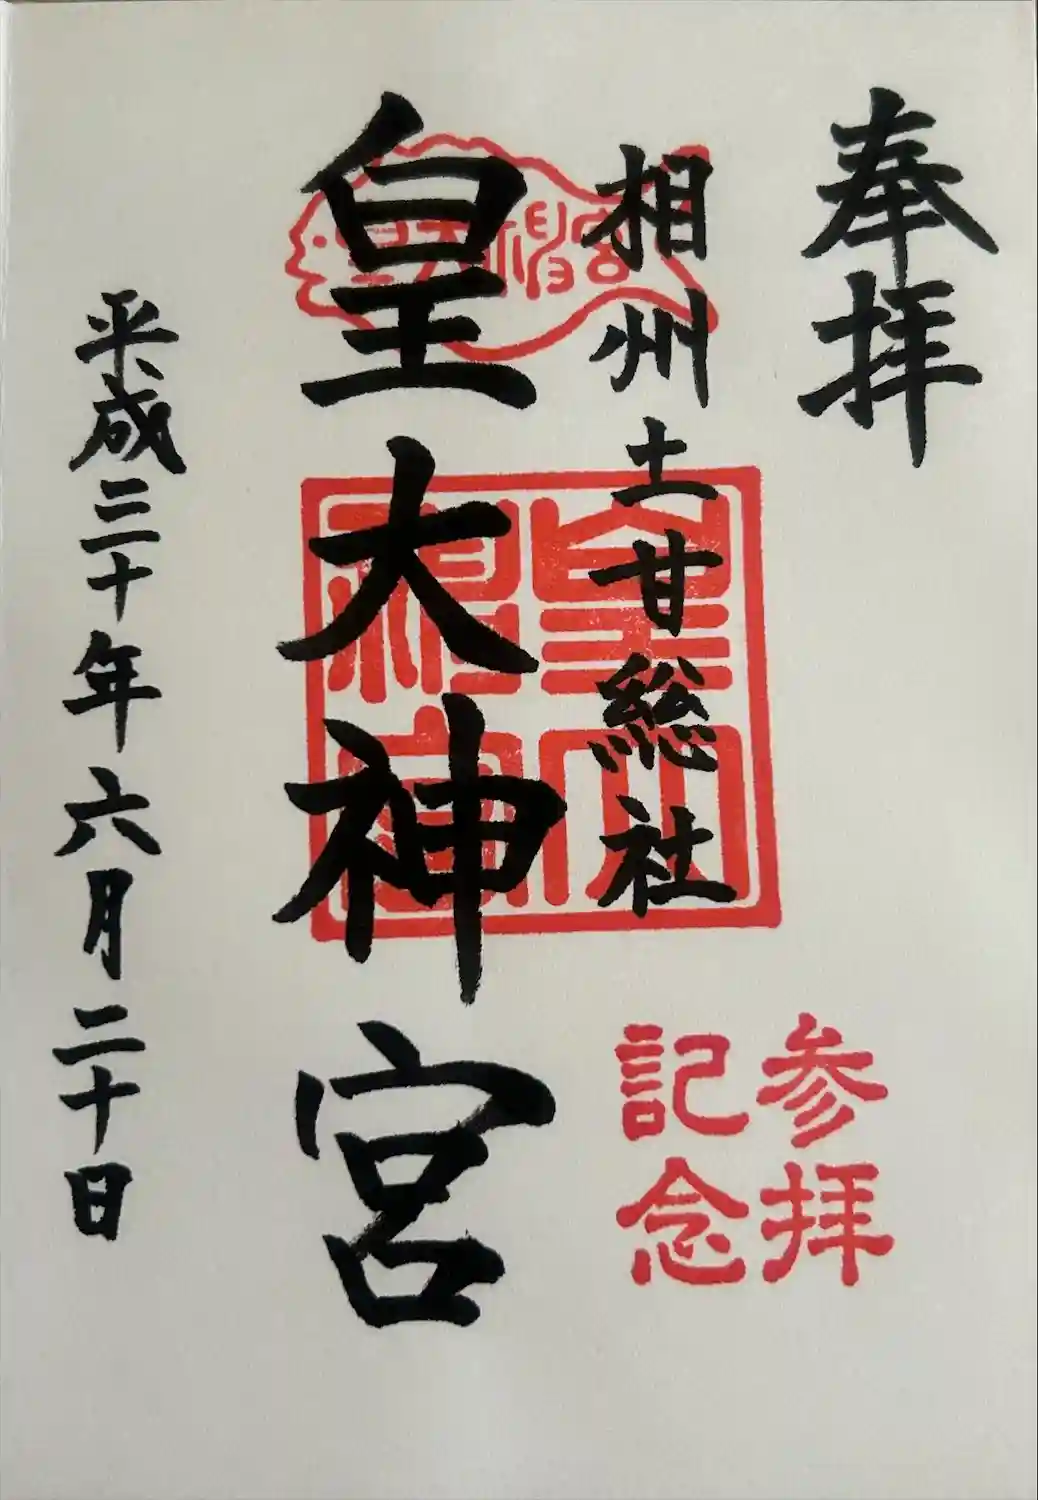 奉拝
相州土甘総社
皇大神宮
平成三十年六月二十日
皇大神宮
皇大神宮
参拝
記念